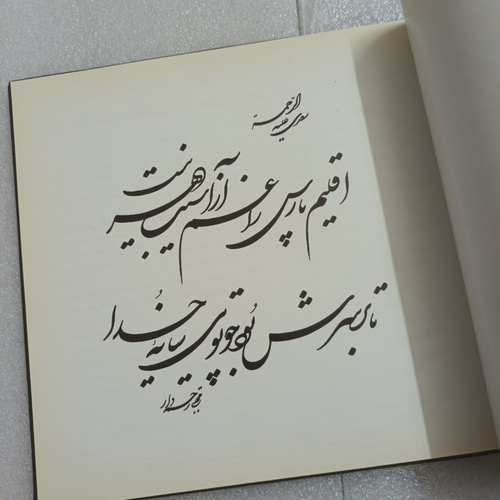 سعدی علیه الرّحمة
اقلیم پارس را غم از آسیب دهر نیست
تا بر سرش بُود چو تویی سایهٔ خُدا